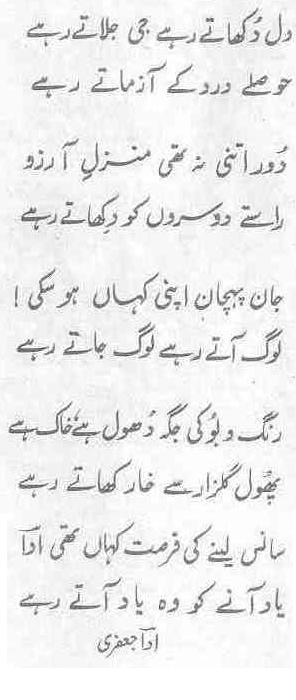 دل دُکھاتے رہے جی جلاتے رہے
حوصلے درد کے آزماتے رہے
دُور اتنی نہ تھی منزلِ آرزو
راستے دوسروں کو دِکھاتے رہے
جان پہچان اپنی کہاں ہو سکی !
لوگ آتے رہے لوگ جاتے رہے
رنگ و بُو کی جگہ دُھول ہے، خاک ہے
پھُول گلزار سے خار کھاتے رہے
سانس لینے کی فرصت کہاں تھی اداؔ
یاد آنے کو وہ یاد آتے رہے
اداؔ جعفری